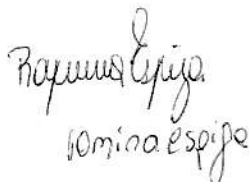 Romina Espiga
rominaespiga